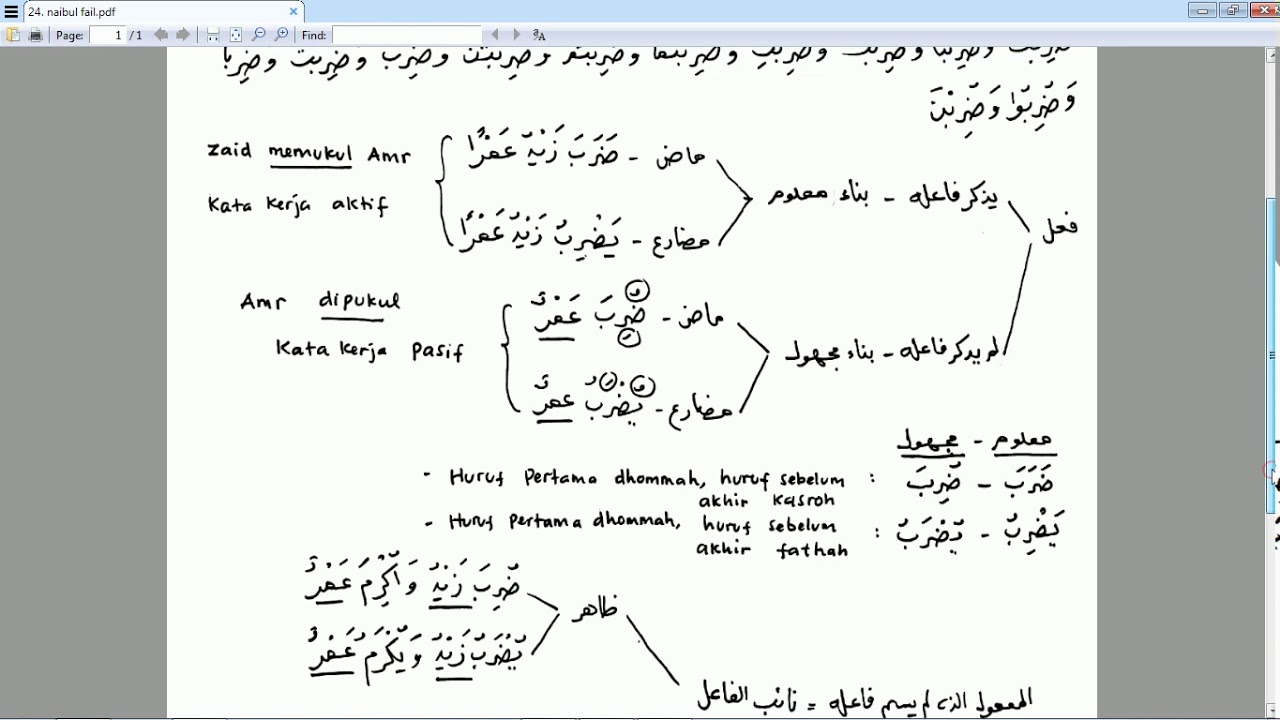 24. naibul fail.pdf
Page: 1 /1 Find:
وَضُرِبُوا وَضُرِبْنَ
Zaid memukul Amr
ضَرَبَ زَيْدٌ عَمْرًا - ماض
Kata kerja aktif
يَضْرِبُ زَيْدٌ عَمْرًا - مضارع
يذكر فاعله - بناء معلوم
فعل
Amr dipukul
ضُرِبَ عَمْرٌ - ماض
Kata kerja pasif
يُضْرَبُ عَمْرٌ - مضارع
لم يذكر فاعله - بناء مجهول
معلوم - مجهول
ضَرَبَ - ضُرِبَ : Huruf Pertama dhommah, huruf sebelum
akhir kasroh
يَضْرِبُ - يُضْرَبُ : Huruf pertama dhommah, huruf sebelum
akhir fathah
ضُرِبَ زَيْدٌ وَأُكْرِمَ عَمْرٌ
ظاهر
يُضْرَبُ زَيْدٌ وَيُكْرَمُ عَمْرٌ
المفعول الذى لم يسم فاعله = نائب الفاعل